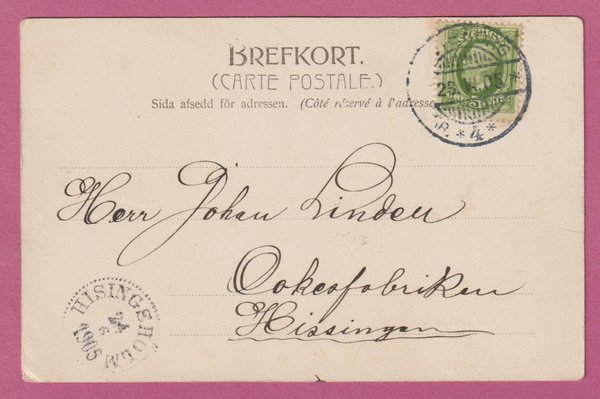 BREFKORT.
(CARTE POSTALE.)
Sida afsedd för adressen. (Côté réservé à l'adresse
*4*
Herr Johan Linden
Oakesfabriken
Hissingen
HISINGSHOLM
24
6
1905